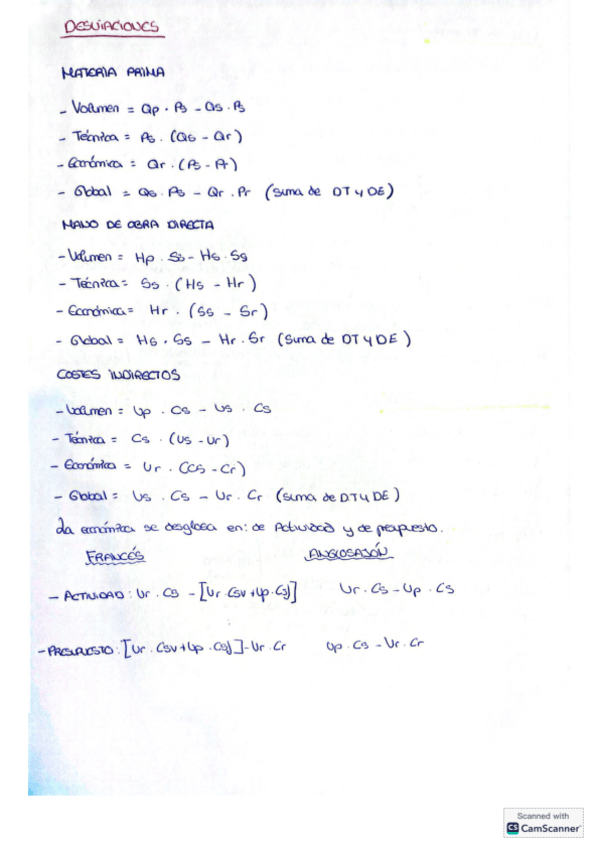 DESVIACIONES
MATERIA PRIMA
- Volumen = Qp · Ps - Qs · Ps
- Técnica = Ps · (Qs - Qr)
- Económica = Qr · (Ps - Pr)
- Global = Qs · Ps - Qr · Pr (Suma de DT y DE)
MANO DE OBRA DIRECTA
- Volumen = Hp · Ss - Hs · Ss
- Técnica = Ss · (Hs - Hr)
- Económica = Hr · (Ss - Sr)
- Global = Hs · Ss - Hr · Sr (Suma de DT y DE)
COSTES INDIRECTOS
- Volumen = Up · Cs - Us · Cs
- Técnica = Cs · (Us - Ur)
- Económica = Ur · (Cs - Cr)
- Global = Us · Cs - Ur · Cr (Suma de DT y DE)
La económica se desglosa en: de Actividad y de presupuesto.
FRANCÉS ANGLOSAJÓN
- ACTIVIDAD: Ur · Cs - [Ur · Csv + Up · Csf] Ur · Cs - Up · Cs
- PRESUPUESTO: [Ur · Csv + Up · Csf] - Ur · Cr Up · Cs - Ur · Cr
Scanned with
CS CamScanner